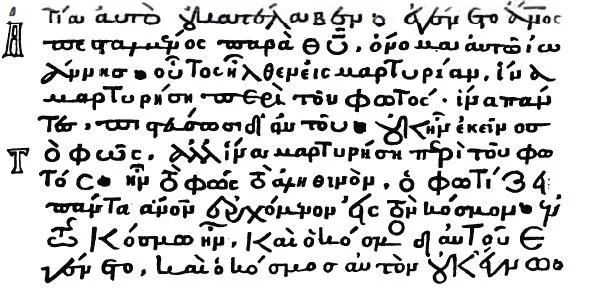 τία αὐτὸ οὐ κατέλαβεν· ἐγένετο ἄνος
ἀπεσταλμένος παρὰ θῦ, ὄνομα αὐτῶ ἰω
άννης· οὗτος ἦλθεν εἰς μαρτυρίαν, ἵνα
μαρτυρήση περὶ τοῦ φωτός· ἵνα πάν
τες, πιστεύσωσι δι αὐτοῦ· οὐκ ἦν ἐκεῖνος
τὸ φῶς, ἀλλ ἵνα μαρτυρήση περὶ τοῦ φω
τός· ἦν τὸ φῶς τὸ ἀληθινὸν, ὃ φωτίζει
πάντα ἄνον ἐρχόμενον εἰς τὸν κόσμον· ἐν
τῶ κόσμω ἦν, καὶ ὁ κόσμος δι αὐτοῦ ἐ
γένετο, καὶ ὁ κόσμος αὐτὸν οὐκ ἔγνω·